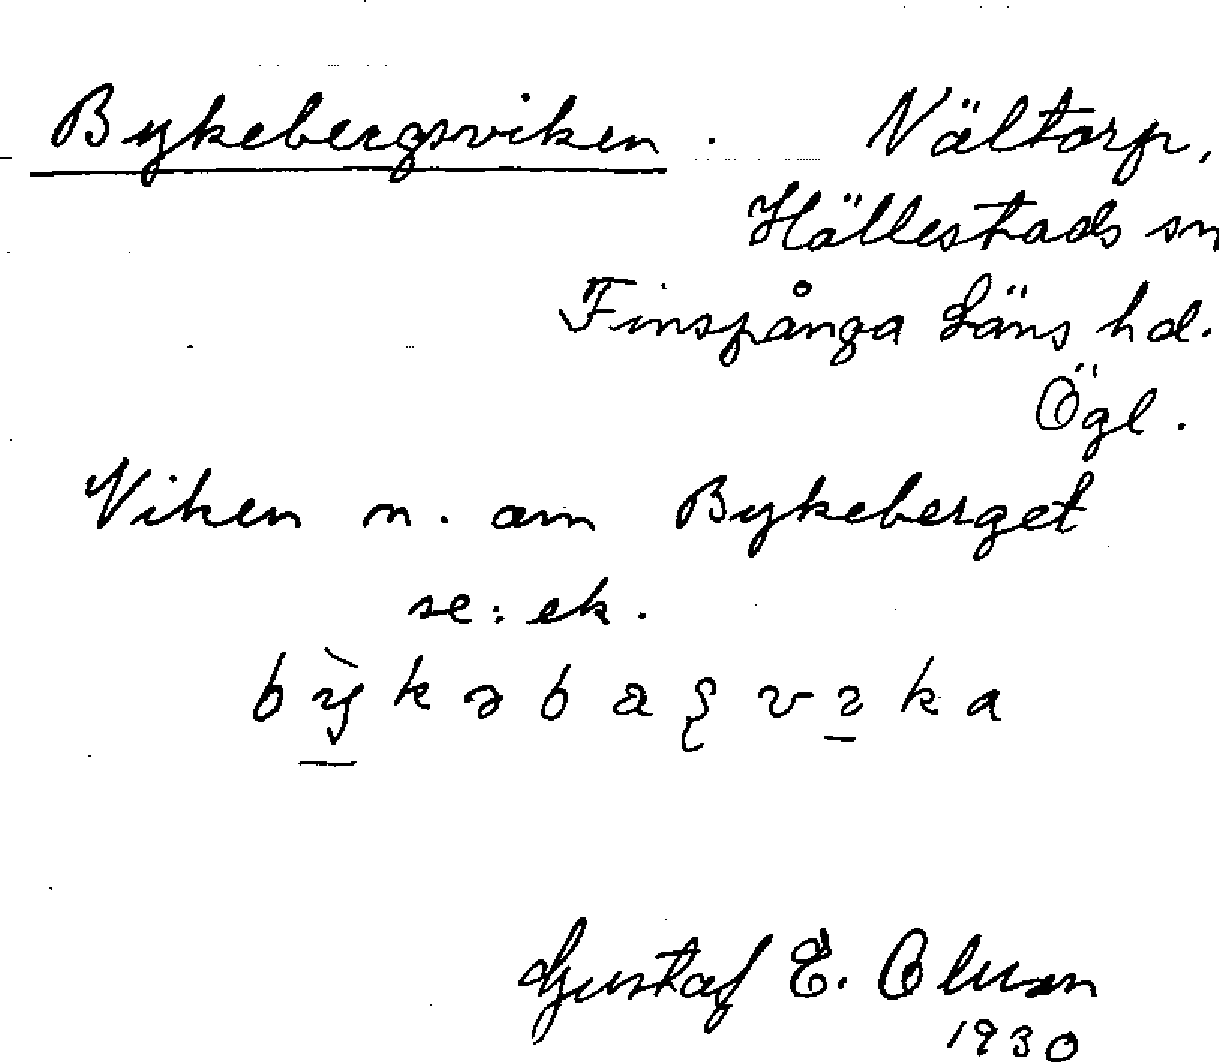 Bykebergsviken. Nältorp,
Hällestads sn
Finspånga Läns hd.
Ögl.
Viken n. om Bykeberget
se: ek.
Gustaf E.
1930